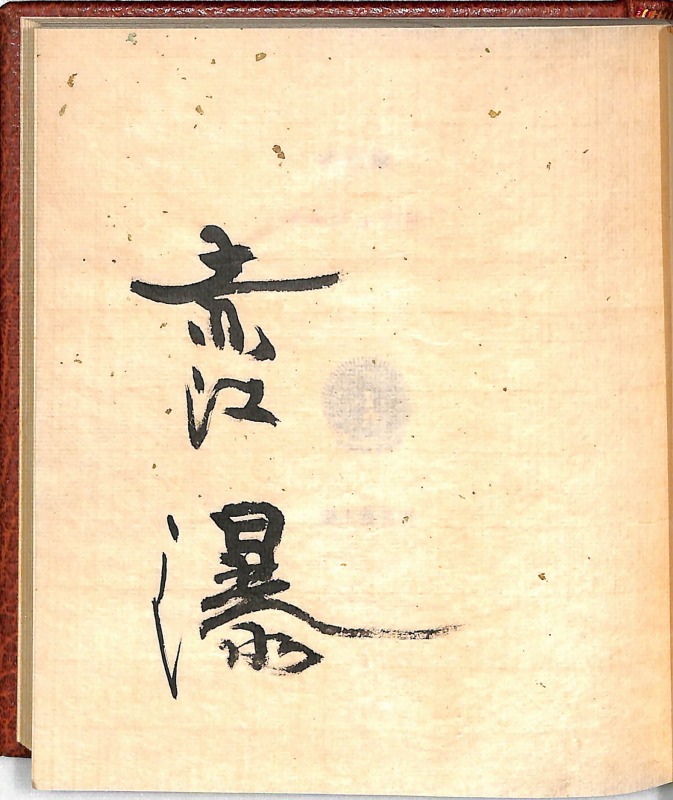 赤江
瀑